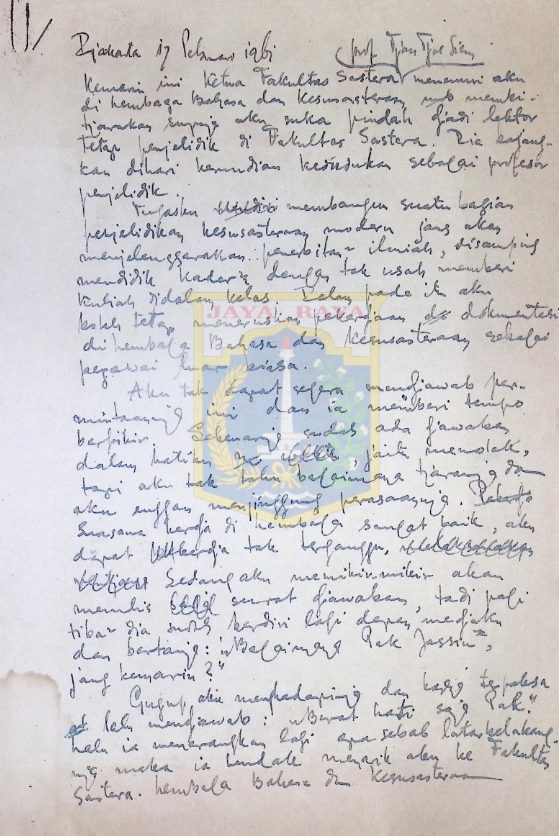 11/
Djakarta 17 Februari 1961 Prof Tjan Tjoe Siem
Kemarin ini Ketua Fakultas Sastera menemui aku
di Lembaga Bahasa dan Kesusasteraan membi-
tjarakan supaja aku suka pindah djadi lektor
tetap penjelidik di Fakultas Sastera. Dia bajang-
kan dihari kemudian kedudukan sebagai profesor
penjelidik.
Tugasku membangun suatu bagian
penjelidikan kesusasteraan modern jang akan
menjelenggarakan penerbitan2 ilmiah, disamping
mendidik kader2 dengan tak usah memberi
kuliah didalam kelas. Dalam pada itu aku
boleh tetap meneruskan pekerjaan dokumentasi
di Lembaga Bahasa dan Kesusasteraan sebagai
pegawai luar biasa.
JAYA RAYA
Aku tak dapat segera mendjawab per-
mintaannja ini dan ia memberi tempo
berpikir. Sebenarnja sudah ada djawaban
dalam hatiku, jaitu menolak,
tapi aku tak tahu bagaimana tjaranja dan
aku enggan menjinggung perasaannja.
Suasana kerdja di Lembaga sangat baik, aku
dapat bekerdja tak terganggu.
Sedang aku memikir-mikir akan
menulis surat djawaban, tadi pagi
tiba2 dia sudah berdiri lagi depan medjaku
dan bertanja: "Bagaimana Pak Jassin,
jang kemarin?"
Gugup aku menghadapinja dan terpaksa
lalu mendjawab: "Berat hati saja Pak."
Lalu ia menerangkan lagi apa sebab latarbelakang-
nja maka ia hendak menarik aku ke Fakultas
Sastera. Lembaga Bahasa dan Kesusasteraan